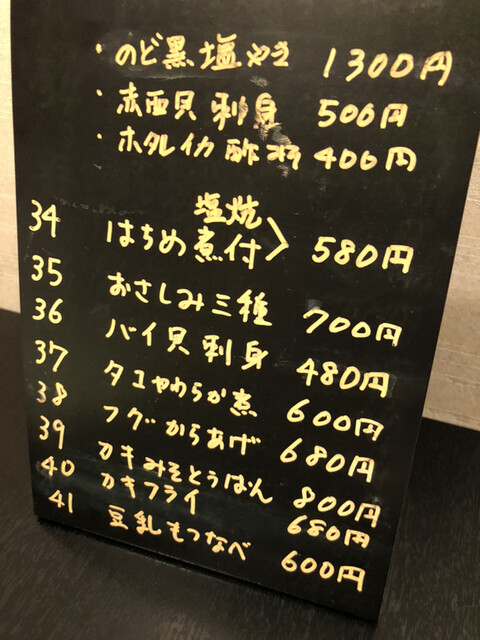 ・のど黒塩やき 1300円
・赤西貝刺身 500円
・ホタルイカ酢みそ 400円
塩焼
34 はちめ煮付〉 580円
35 おさしみ三種 700円
36 バイ貝刺身 480円
37 タコやわらか煮 600円
38 フグからあげ 680円
39 カキみそとうばん 800円
40 カキフライ 680円
41 豆乳もつなべ 600円